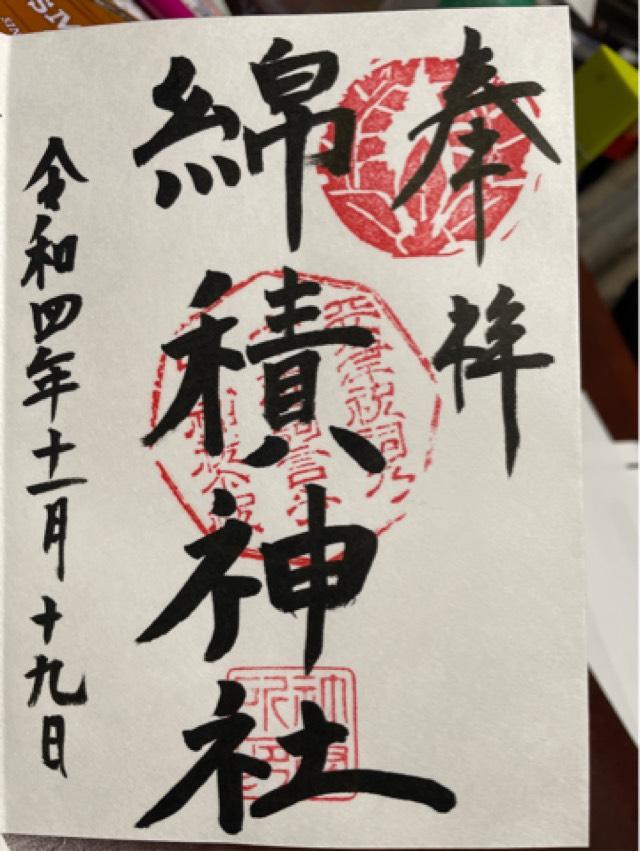 奉拝
綿積神社
令和四年十一月十九日